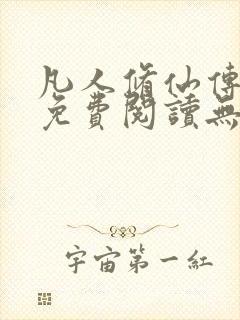 凡人脩仙傳
免費閱讀無
宇宙第一紅